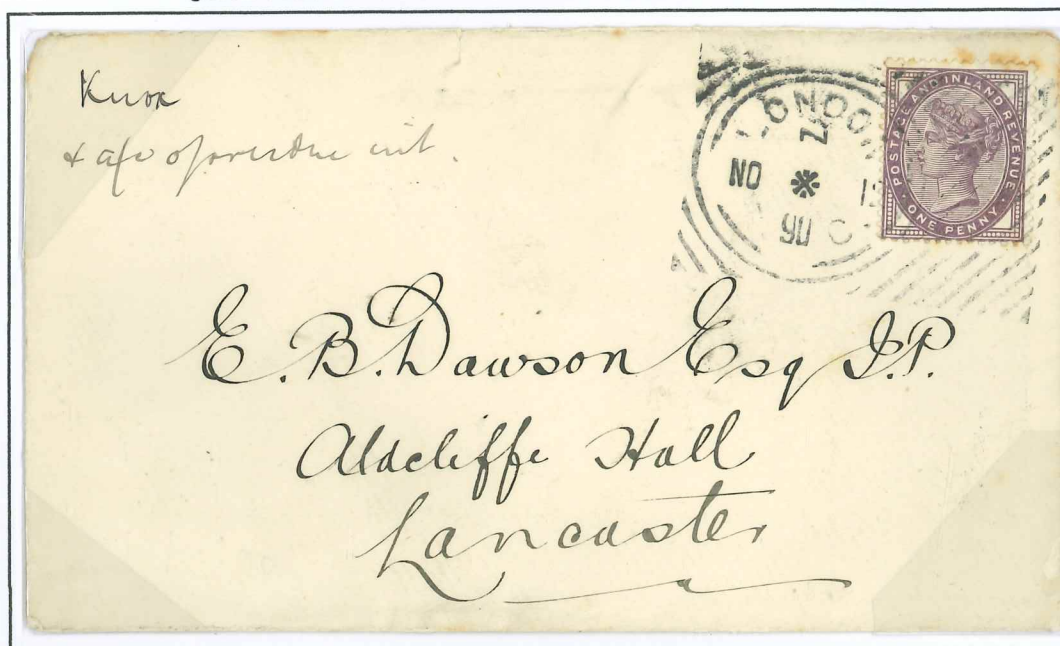 Knox
LONDON
NO
90 C
POSTAGE AND INLAND REVENUE
ONE PENNY
E. B. Dawson Esq J.P.
Aldcliffe Hall
Lancaster